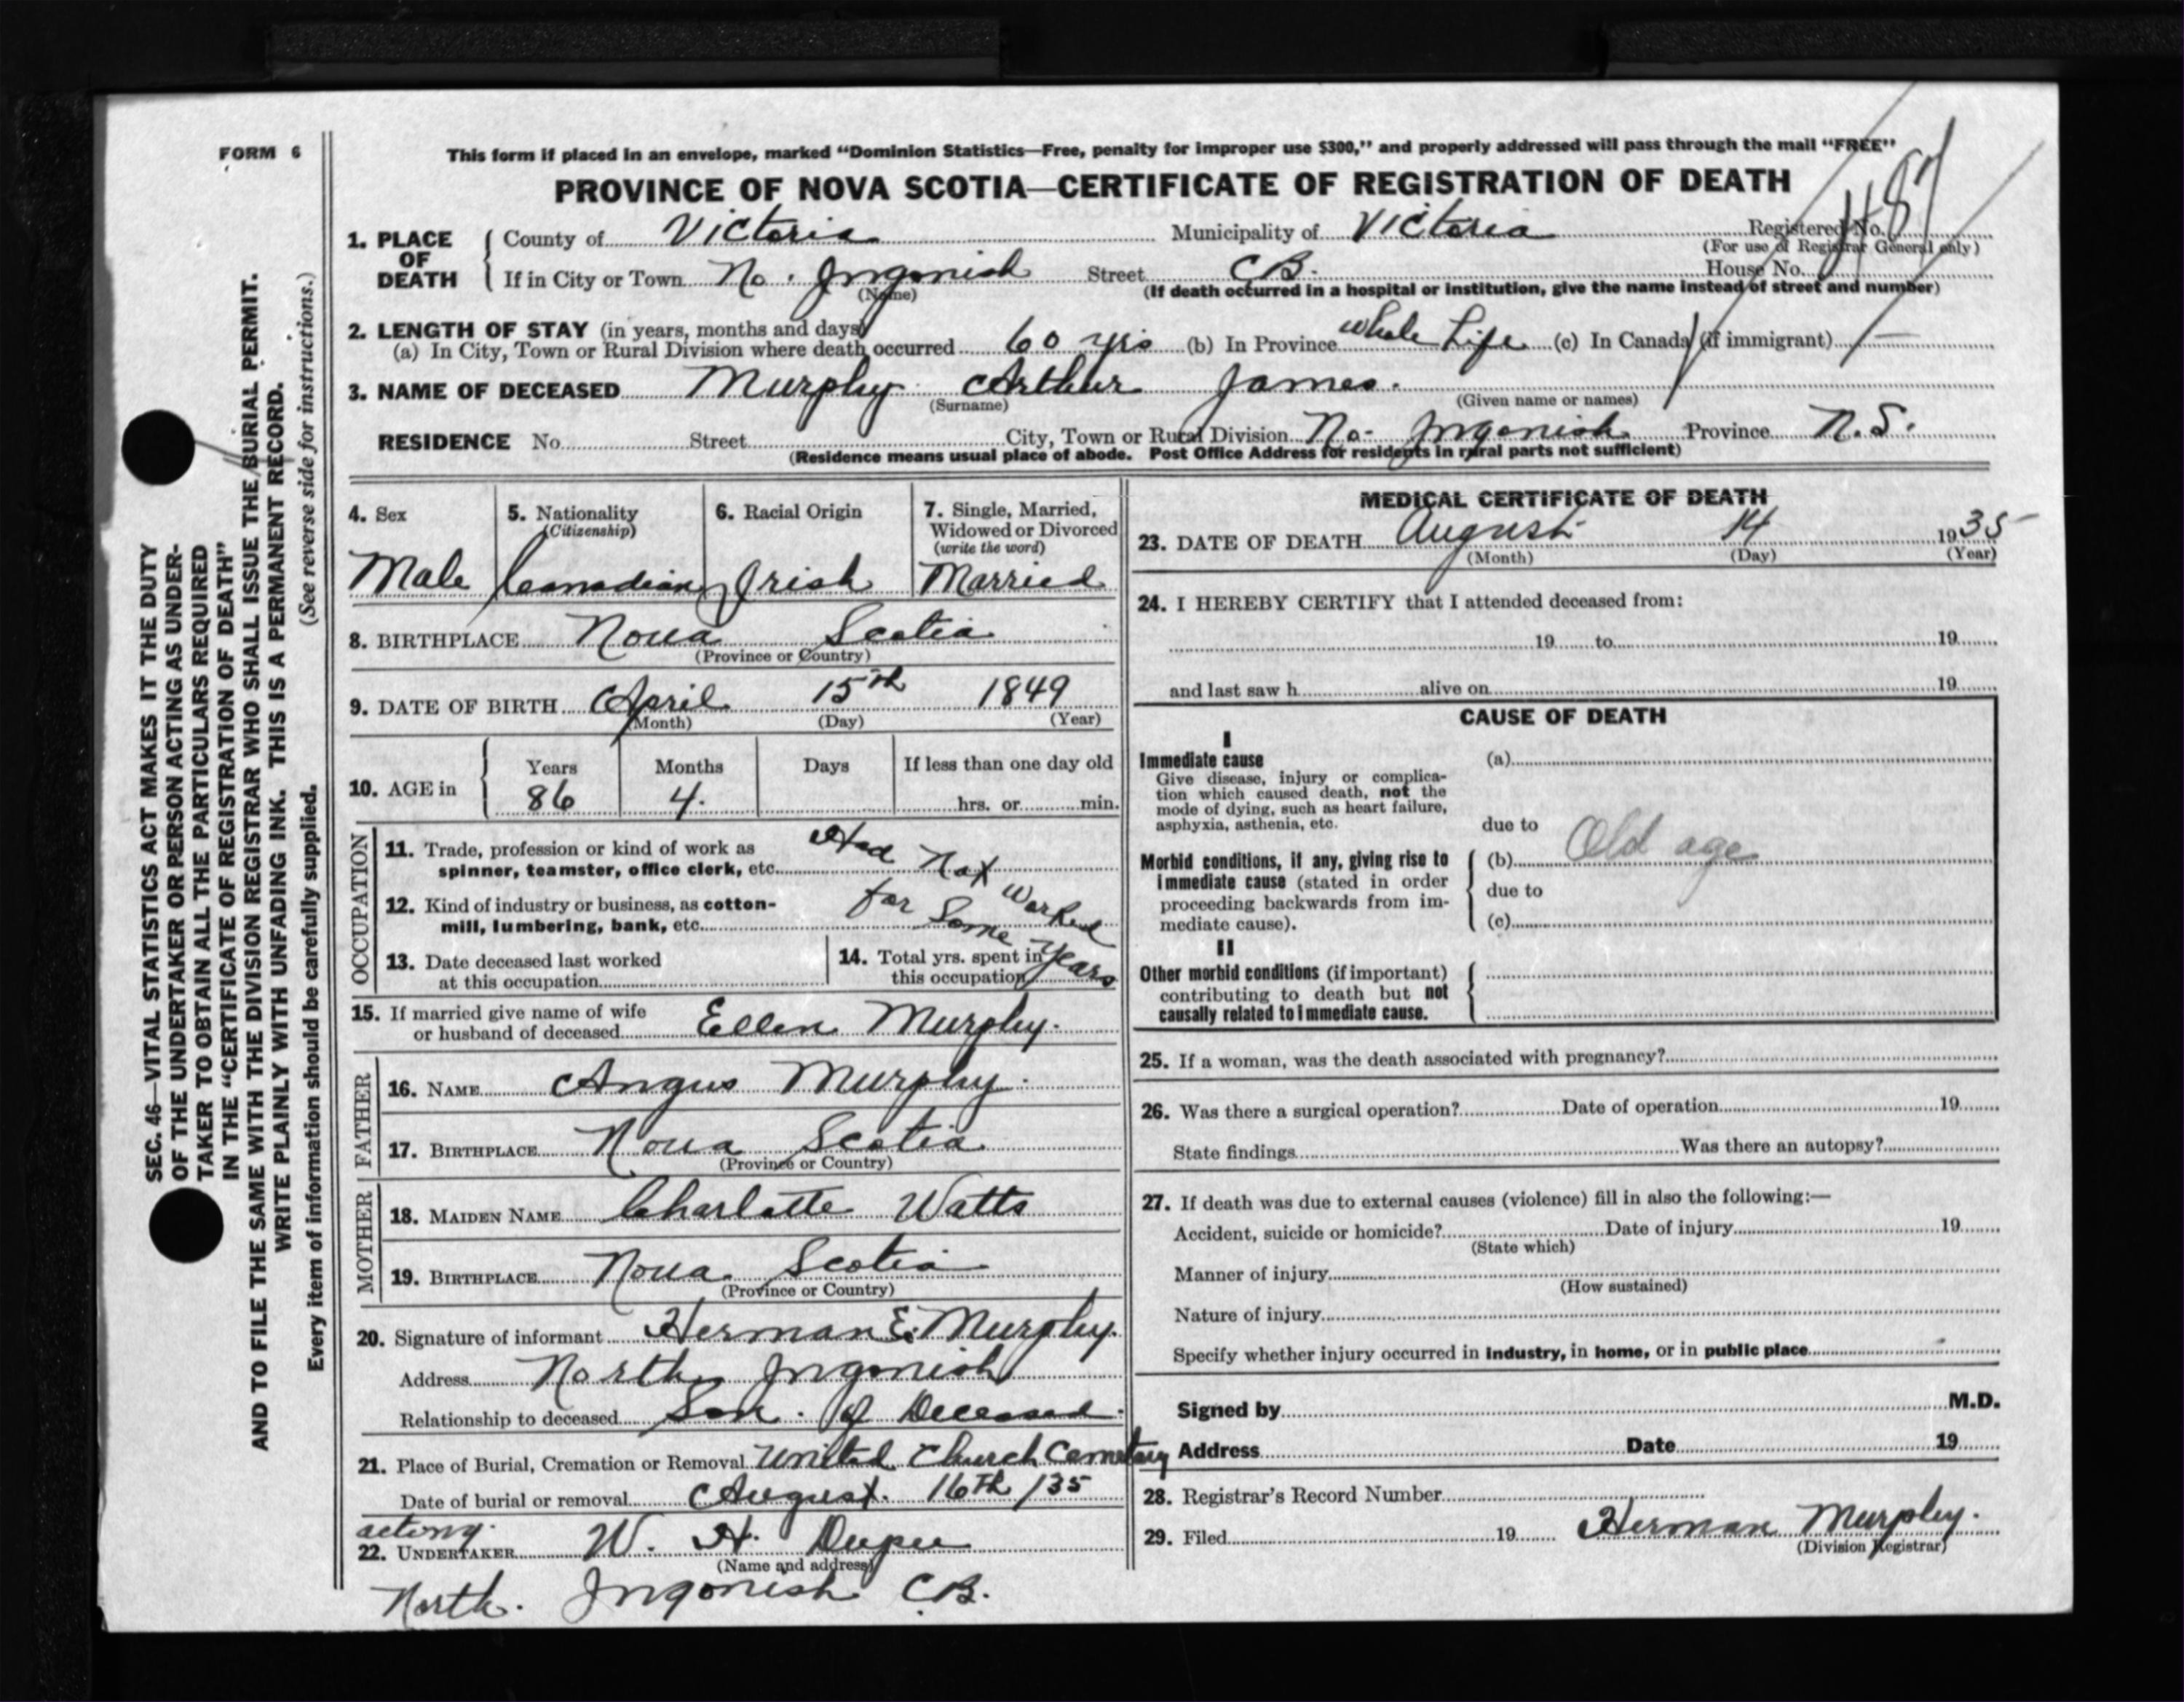 FORM 6
This form if placed in an envelope, marked “Dominion Statistics—Free, penalty for improper use $300,” and properly addressed will pass through the mail “FREE”
PROVINCE OF NOVA SCOTIA—CERTIFICATE OF REGISTRATION OF DEATH
1. PLACE OF DEATH { County of Victoria Municipality of Victoria Registered No.
(For use of Registrar General only)
If in City or Town No. Ingonish Street CB. House No.
(Name) (If death occurred in a hospital or institution, give the name instead of street and number)
2. LENGTH OF STAY (in years, months and days)
(a) In City, Town or Rural Division where death occurred 60 yrs (b) In Province whole Life (c) In Canada (if immigrant) —
3. NAME OF DECEASED Murphy Arthur James.
(Surname) (Given name or names)
RESIDENCE No. Street City, Town or Rural Division No- Ingonish Province N.S.
(Residence means usual place of abode. Post Office Address for residents in rural parts not sufficient)
4. Sex 5. Nationality (Citizenship) 6. Racial Origin 7. Single, Married, Widowed or Divorced (write the word)
Male Canadian Irish Married
8. BIRTHPLACE Nova Scotia
(Province or Country)
9. DATE OF BIRTH April 15th 1849
(Month) (Day) (Year)
10. AGE in { Years Months Days If less than one day old
86 4. hrs. or min.
OCCUPATION
11. Trade, profession or kind of work as
spinner, teamster, office clerk, etc. Had Not Worked
12. Kind of industry or business, as cotton-
mill, lumbering, bank, etc. for Some years
13. Date deceased last worked
at this occupation
14. Total yrs. spent in
this occupation
15. If married give name of wife
or husband of deceased Ellen Murphy.
FATHER
16. NAME Angus Murphy.
17. BIRTHPLACE Nova Scotia
(Province or Country)
MOTHER
18. MAIDEN NAME Charlotte Watts
19. BIRTHPLACE Nova Scotia
(Province or Country)
20. Signature of informant Herman E. Murphy.
Address North Ingonish
Relationship to deceased Son. of Deceased.
21. Place of Burial, Cremation or Removal United Church Cemetary
Date of burial or removal August. 16th /35
acting.
22. UNDERTAKER W. H. Dupee
(Name and address)
North. Ingonish CB.
MEDICAL CERTIFICATE OF DEATH
23. DATE OF DEATH August 14 1935
(Month) (Day) (Year)
24. I HEREBY CERTIFY that I attended deceased from:
19 to 19
and last saw h alive on 19
CAUSE OF DEATH
I
Immediate cause (a)
Give disease, injury or complica-
tion which caused death, not the
mode of dying, such as heart failure,
asphyxia, asthenia, etc.
due to
Morbid conditions, if any, giving rise to (b) Old age
immediate cause (stated in order due to
proceeding backwards from im-
mediate cause). (c)
II
Other morbid conditions (if important)
contributing to death but not
causally related to immediate cause.
25. If a woman, was the death associated with pregnancy?
26. Was there a surgical operation? Date of operation 19
State findings Was there an autopsy?
27. If death was due to external causes (violence) fill in also the following:—
Accident, suicide or homicide? Date of injury 19
(State which)
Manner of injury
(How sustained)
Nature of injury
Specify whether injury occurred in industry, in home, or in public place
Signed by M.D.
Address Date 19
28. Registrar’s Record Number
29. Filed 19 Herman Murphy.
(Division Registrar)
SEC. 46—VITAL STATISTICS ACT MAKES IT THE DUTY
OF THE UNDERTAKER OR PERSON ACTING AS UNDER-
TAKER TO OBTAIN ALL THE PARTICULARS REQUIRED
IN THE “CERTIFICATE OF REGISTRATION OF DEATH”
AND TO FILE THE SAME WITH THE DIVISION REGISTRAR WHO SHALL ISSUE THE BURIAL PERMIT.
WRITE PLAINLY WITH UNFADING INK. THIS IS A PERMANENT RECORD.
Every item of information should be carefully supplied. (See reverse side for instructions.)